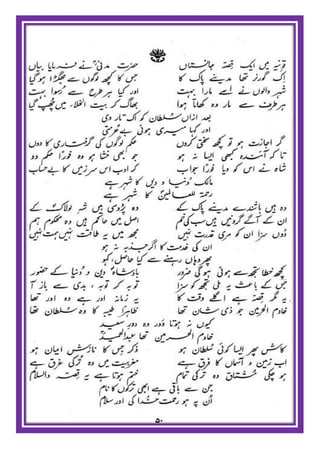 حضرت مدنیؒ نے فرمایا بیاں
قونیہ میں ایک قصہ جانستاں
جس کا کچھ لوگوں سے جھگڑا ہو گیا
اک گورنر تھا مدینے پاک کا
اور کیا ہر طرح سے رسوا بہت
شہر والوں نے اُسے مارا بہت
بھاگ کر بیت الخلاء میں چھپ گیا
ہر طرف سے مار وہ کھاتا ہوا
بعد ازاں سلطان کو اک تار دی
اور کہا میری ہوئی بے حرمتی
حکم لوگوں کی گرفتاری کا دوں
گر اجازت ہو تو کچھ سختی کروں
جو کبھی خشا ہو وہ فوراً حکم دو
تا کہ آئندہ کبھی ایسا نہ ہو
کر ادب اس سرزمیں کا بے حساب
شاہ نے اس کو دیا فوراً جواب
مالکِ دنیا و دیں کا شہر ہے
رحمۃ للعالمیںؐ کا شہر ہے
وہ پڑوسی ہیں شہِ لولاک کے
وہ ہیں باشندے مدینے پاک کے
اصل میں حاکم ہیں وہ محکوم ہم
ان کے آگے گردنیں ہیں سب کی خم
مجھ میں یہ طاقت نہیں ہمت نہیں
دوں سزا ان کو مری قدرت نہیں
ان کی خدمت کا اگر جذبہ نہ ہو
پھر وہاں رہنے سے کیا حاصل، کہو
بادشاہِ دین و دنیا کے حضور
کچھ خطا تجھ سے ہوئی ہو گی ضرور
توبہ کر توبہ ، بدی سے باز آ
جس کے باعث یہ ملی تجھ کو سزا
یہ زمانہ اور ہے وہ اور تھا
یہ مگر قصہ ہے اگلے وقت کا
ظاہراً طیبہ کا وہ سلطان تھا
خادم الحرمین جو ذی شان تھا
کیوں نہ ہوتا وہ دورِ سعید
خادم الحرمین تھا عبدالحمید
ذکر جس کا نازشِ ایمان ہو
کاش پھر ایسا کوئی سلطان ہو
مغربیت میں وہ ترکی غرق ہے
اب زمین و آسماں کا فرق ہے
ختم ہوتا ہے یہ قصہ والسلام
ہو چکی مشتاق وہ ترکی تمام
جن سے باقی ہے ابھی ترکوں کا نام
اُن پہ ہو رحمت خدا کی اور سلام
۵۰